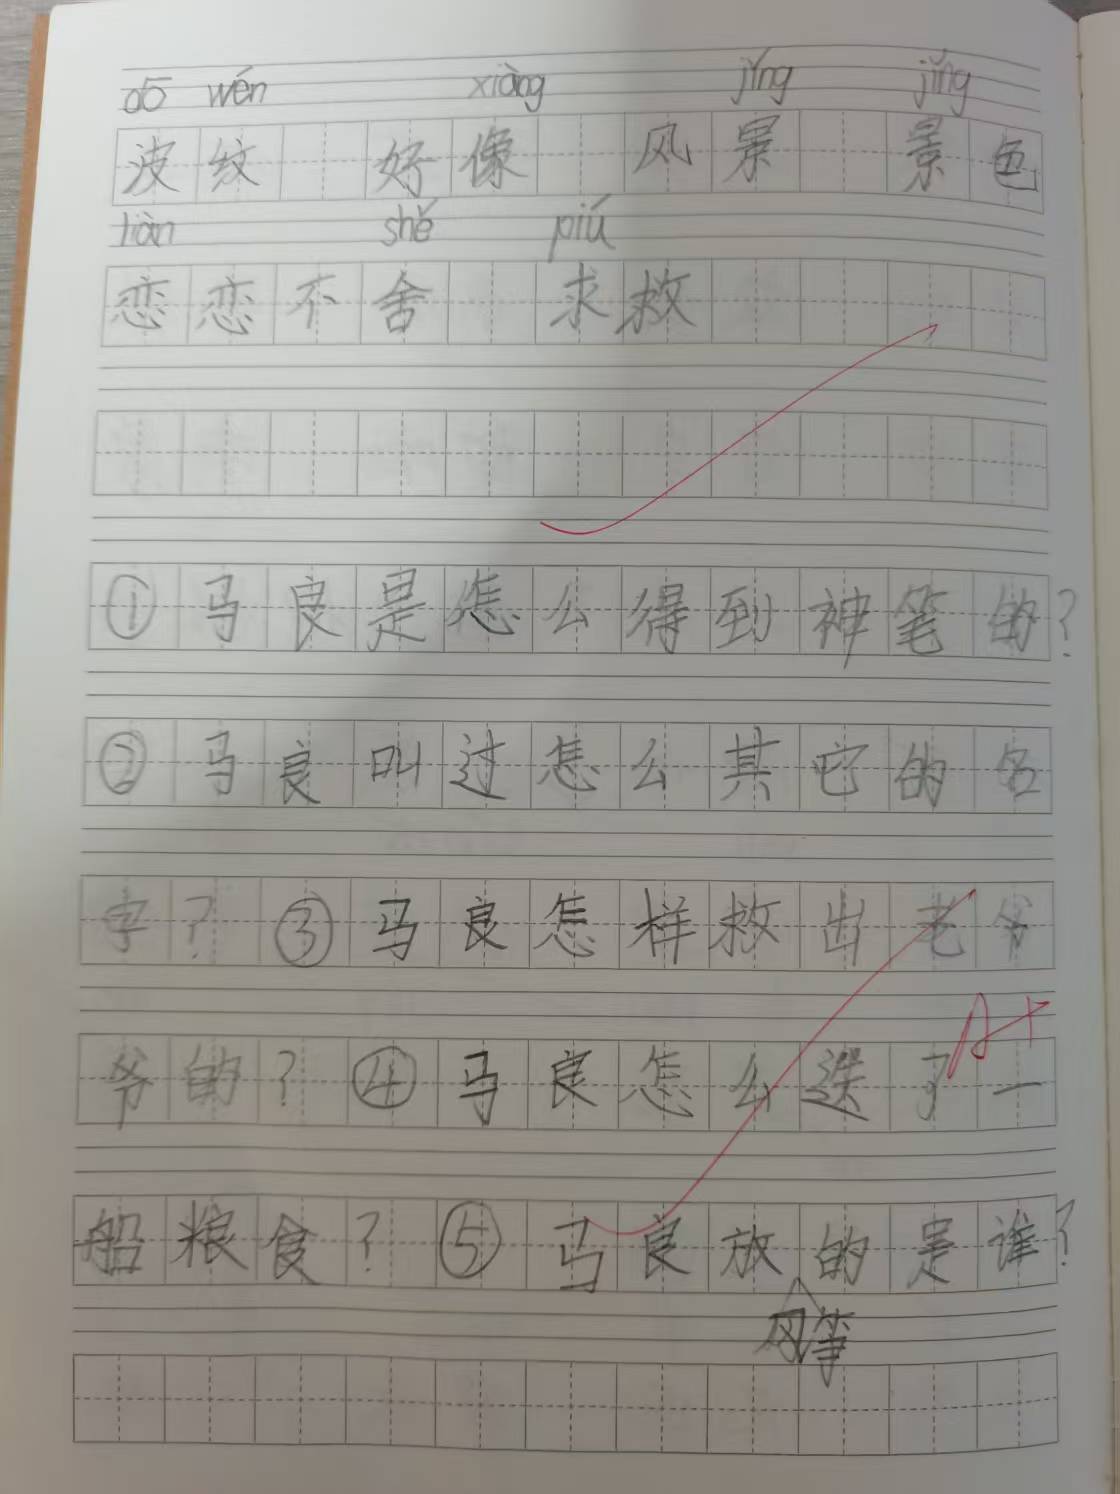 wén xiàng jǐng jǐng
波纹 好像 风景 景色
liàn shě piú
恋恋不舍 求救
①马良是怎么得到神笔的?
②马良叫过怎么其它的名
字?③马良怎样救出老爷
爷的?④马良怎么送了一
A+
船粮食?⑤马良放的是谁?
风筝